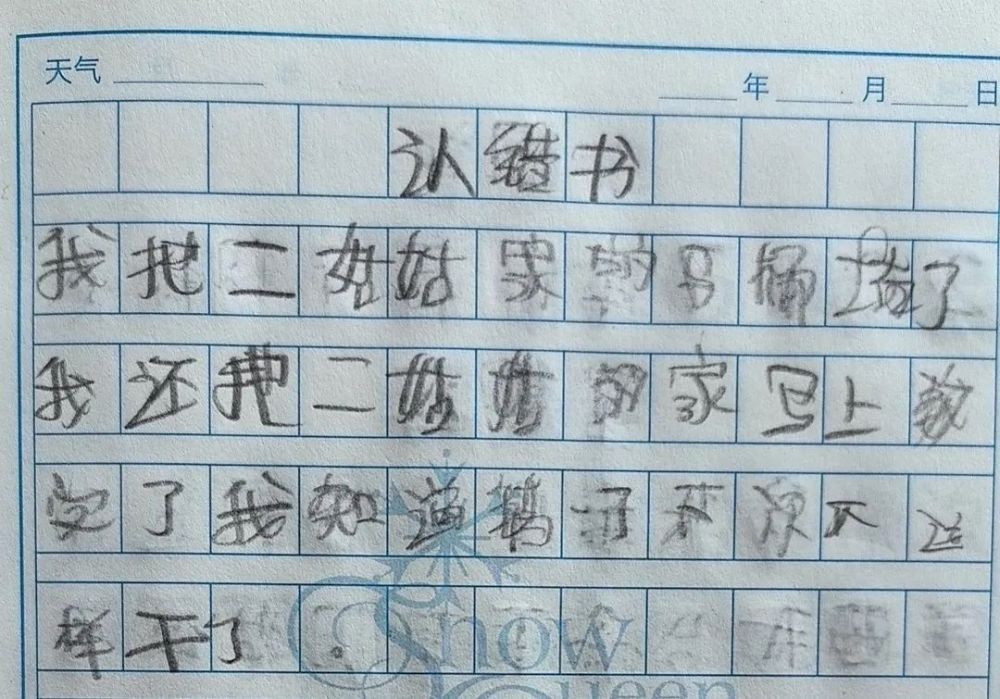 天气 年 月 日
认错书
我把二姑姑家的号弄塌了
我还把二姑姑的家写上数
字了我知道错了下次不这
样干了。
Snow
Queen